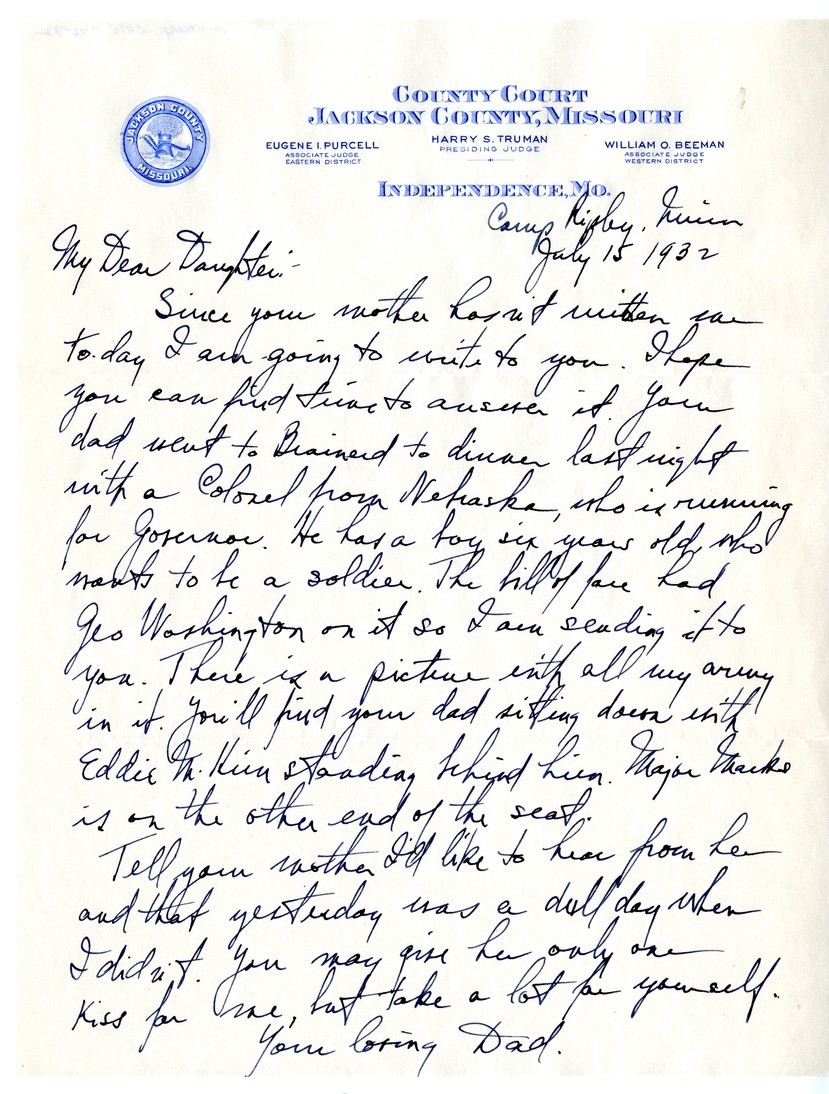 COUNTY COURT
JACKSON COUNTY, MISSOURI
JACKSON COUNTY
MISSOURI
HARRY S. TRUMAN
PRESIDING JUDGE
EUGENE I. PURCELL
ASSOCIATE JUDGE
EASTERN DISTRICT
WILLIAM O. BEEMAN
ASSOCIATE JUDGE
WESTERN DISTRICT
INDEPENDENCE, MO.
Camp Ripley, Minn
July 15 1932
My Dear Daughter:-
Since your mother hasn't written me
to-day I am going to write to you. I hope
you can find time to answer it. Your
dad went to Brainerd to dinner last night
with a Colonel from Nebraska, who is running
for Governor. He has a boy six years old, who
wants to be a soldier. The bill of fare had
Geo Washington on it so I am sending it to
you. There is a picture with all my army
in it. You'll find your dad sitting down with
Eddie McKim standing behind him. Major Marks
is on the other end of the seat.
Tell your mother I'd like to hear from her
and that yesterday was a dull day when
I didn't. You may give her only one
kiss for me, but take a lot for yourself.
Your loving Dad.